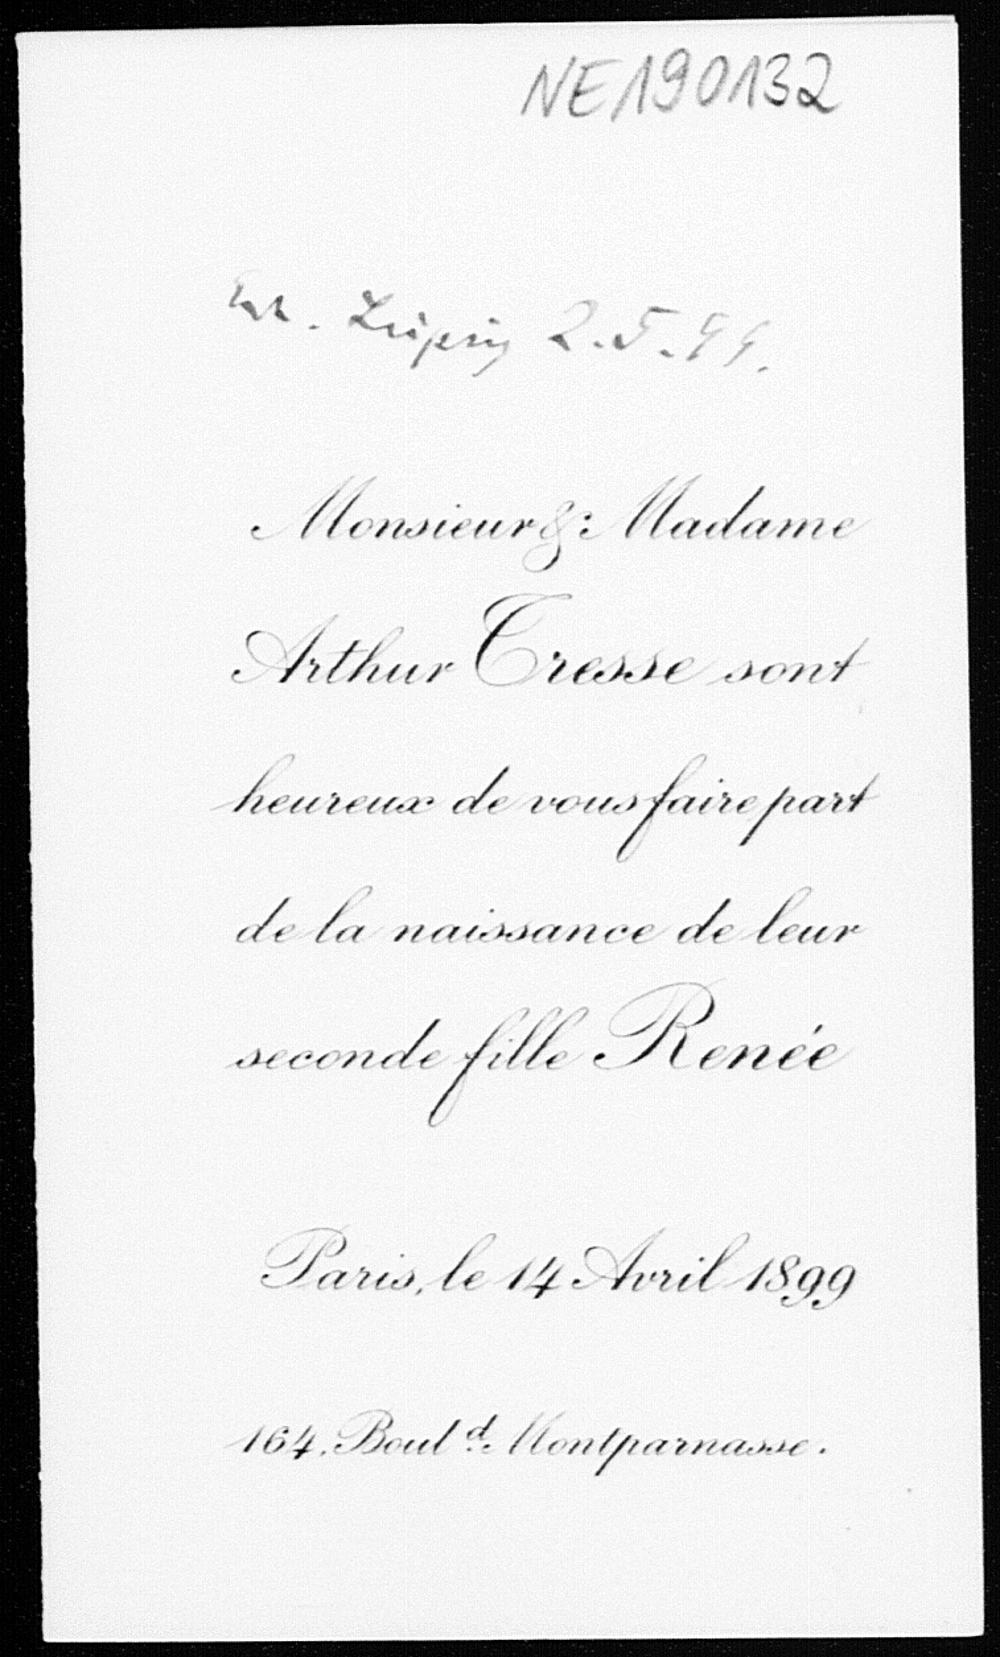 NE190132
Erh. Leipzig 2.5.99.
Monsieur & Madame
Arthur Tresse sont
heureux de vous faire part
de la naissance de leur
seconde fille Renée
Paris, le 14 Avril 1899
164, Boul.d Montparnasse.